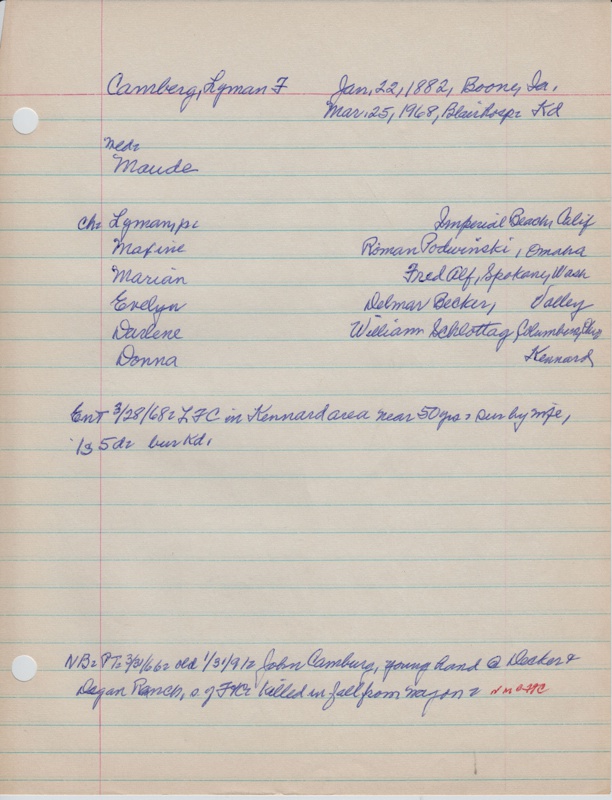 Camberg, Lyman F Jan. 22, 1882, Boone, Ia.
Mar. 25, 1968, Blair hosp: Kd
Med:
Maude
Ch: Lyman, jr: Imperial Beach, Calif
Maxine Roman Podwinski, Omaha
Marian Fred Alf, Spokane, Wash
Evelyn Delmar Becker, Valley
Darlene William Schlottag, Columbus,
Donna Kennard
Ent 3/28/68: LFC in Kennard area near 50 yrs: sur by wife,
1s 5d: bur Kd.
NB: PT: 3/31/66: old 1/31/91: John Camburg, young hand @ Decker &
Degan Ranch, e of killed in fall from wagon: